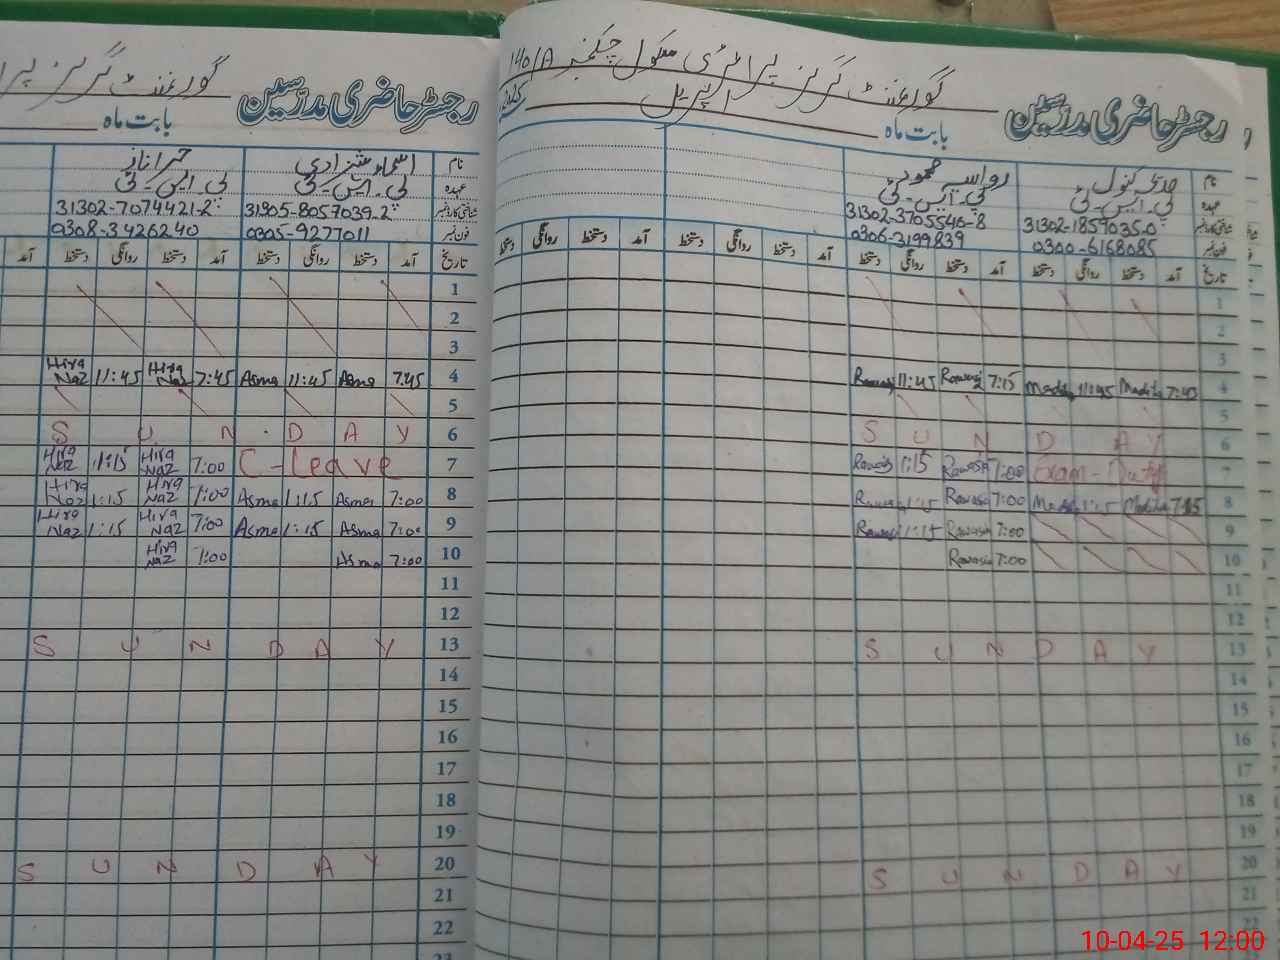 گورنمنٹ گرلز پرائمری سکول چکنمبر 140/A
رجسٹر حاضری مدرسین
بابت ماہ اپریل
نام
عہدہ
شناختی کارڈ نمبر
فون نمبر
کنول
پی۔ایس۔ٹی
31302-1859035-0
0300-6168085
رواسیہ محمود
پی۔ایس۔ٹی
31302-3705546-8
0306-3199839
تاریخ آمد دستخط روانگی دستخط آمد دستخط روانگی دستخط آمد دستخط روانگی دستخط آمد دستخط روانگی دستخط
1
2
3
4 7:45 Madiha 11:45 7:15 11:45
5
6 S U N D A Y
7 Exam - Duty 7:00 Rawasia 1:15
8 7:15 Madiha 1:15 7:00 Rawasia 1:15
9 7:00 Rawasia 1:15
10 7:00 Rawasia
11
12
13 S U N D A Y
14
15
16
17
18
19
20 S U N D A Y
21
22
گورنمنٹ گرلز پرا
رجسٹر حاضری مدرسین
بابت ماہ
نام
عہدہ
شناختی کارڈ نمبر
فون نمبر
اسماء شہزادی
پی۔ایس۔ٹی
31205-8057039-2
0305-9277011
حرا ناز
پی۔ایس۔ٹی
31302-7074421-2
0308-3426240
تاریخ آمد دستخط روانگی دستخط آمد دستخط روانگی دستخط آمد
1
2
3
4 7:45 Asma 11:45 Asma 7:45 Hira Naz 11:45 Hira Naz
5
6 S U N D A Y
7 C-Leave 7:00 Hira Naz 1:15 Hira Naz
8 7:00 Asma 1:15 Asma 7:00 Hira Naz 1:15 Hira Naz
9 7:00 Asma 1:15 Asma 7:00 Hira Naz 1:15 Hira Naz
10 7:00 Asma 7:00 Hira Naz
11
12
13 S U N D A Y
14
15
16
17
18
19
20 S U N D A Y
21
22
23
10-04-25 12:00